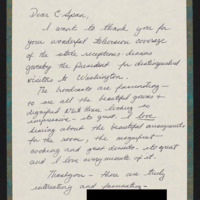 Dear C-Span,
I want to thank you for
your wonderful television coverage
of the state receptions dinners
given by the President for distinguished
visitors to Washington.
The broadcasts are fascinating -
to see all the beautiful gowns &
dignified White House looking so
impressive - its great. I love
hearing about the beautiful arrangements
for the room, the magnificent
cooking and great desserts. its great
and I love every minute of it.
Thank you - these are truly
interesting and fascinating -